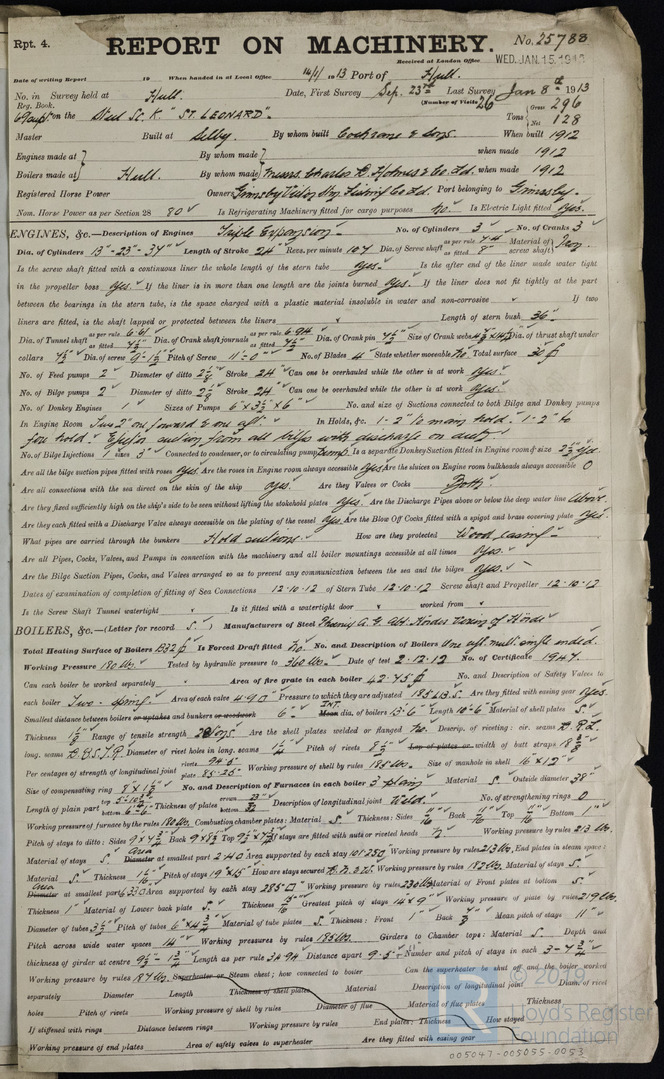 Rpt. 4.
REPORT ON MACHINERY.
No. 25788
Received at London Office WED. JAN. 15. 1913
Date of writing Report 19 When handed in at Local Office 14/1/ 1913 Port of Hull.
No. in Survey held at Hull. Date, First Survey Sep. 23rd Last Survey Jan 8th 1913
Reg. Book. (Number of Visits 26
on the Steel Sc. K. "ST. LEONARD". Tons { Gross 296 Net 128
Master Built at Selby. By whom built Cochrane & Sons. When built 1912
Engines made at By whom made when made 1912
Boilers made at Hull. By whom made Messrs. Charles D. Holmes & Co. Ld. when made 1912
Registered Horse Power Owners Grimsby Victor Stm. Fishing Co. Ld. Port belonging to Grimsby.
Nom. Horse Power as per Section 28 80 Is Refrigerating Machinery fitted for cargo purposes No. Is Electric Light fitted Yes.
ENGINES, &c.—Description of Engines Triple Expansion No. of Cylinders 3 No. of Cranks 3
Dia. of Cylinders 13"-23"-37" Length of Stroke 24" Revs. per minute 107 Dia. of Screw shaft as per rule 7.4 as fitted 8" Material of screw shaft Iron.
Is the screw shaft fitted with a continuous liner the whole length of the stern tube Yes. Is the after end of the liner made water tight
in the propeller boss Yes. If the liner is in more than one length are the joints burned Yes. If the liner does not fit tightly at the part
between the bearings in the stern tube, is the space charged with a plastic material insoluble in water and non-corrosive If two
liners are fitted, is the shaft lapped or protected between the liners Length of stern bush 36"
Dia. of Tunnel shaft as per rule 6.61 as fitted 7½" Dia. of Crank shaft journals as per rule 6.94 as fitted 7½" Dia. of Crank pin 7½" Size of Crank webs Dia. of thrust shaft under
collars 7½" Dia. of screw 9'-1½" Pitch of Screw 11'-0" No. of Blades 4 State whether moveable No. Total surface 30
No. of Feed pumps 2 Diameter of ditto Stroke 24" Can one be overhauled while the other is at work Yes.
No. of Bilge pumps 2 Diameter of ditto Stroke 24" Can one be overhauled while the other is at work Yes.
No. of Donkey Engines 1 Sizes of Pumps 6" x 3½" x 6" No. and size of Suctions connected to both Bilge and Donkey pumps
In Engine Room Two 2" one forward & one aft. In Holds, &c. 1-2" to main hold. 1-2" to
fore hold. Ejector suction from all bilges with discharge on deck
No. of Bilge Injections 1 sizes 3" Connected to condenser, or to circulating pump Pump. Is a separate Donkey Suction fitted in Engine room & size 2½" Yes.
Are all the bilge suction pipes fitted with roses Yes. Are the roses in Engine room always accessible Yes. Are the sluices on Engine room bulkheads always accessible 0
Are all connections with the sea direct on the skin of the ship Yes. Are they Valves or Cocks Both.
Are they fixed sufficiently high on the ship's side to be seen without lifting the stokehold plates Yes. Are the Discharge Pipes above or below the deep water line Above.
Are they each fitted with a Discharge Valve always accessible on the plating of the vessel Yes. Are the Blow Off Cocks fitted with a spigot and brass covering plate Yes.
What pipes are carried through the bunkers Hold suctions. How are they protected Wood casing
Are all Pipes, Cocks, Valves, and Pumps in connection with the machinery and all boiler mountings accessible at all times Yes.
Are the Bilge Suction Pipes, Cocks, and Valves arranged so as to prevent any communication between the sea and the bilges Yes.
Dates of examination of completion of fitting of Sea Connections 12.10.12 of Stern Tube 12.10.12 Screw shaft and Propeller 12.10.12
Is the Screw Shaft Tunnel watertight Is it fitted with a watertight door worked from
BOILERS, &c.—(Letter for record S.) Manufacturers of Steel Phoenix A.G. Abt. Hörder Verein of Hörde
Total Heating Surface of Boilers 1332 Is Forced Draft fitted No. No. and Description of Boilers One cyl. mult. single ended.
Working Pressure 180 lbs. Tested by hydraulic pressure to 360 lbs. Date of test 2.12.12 No. of Certificate 1947.
Can each boiler be worked separately Area of fire grate in each boiler 42.75 No. and Description of Safety Valves to
each boiler Two - spring. Area of each valve 4.90 Pressure to which they are adjusted 185 LBS. Are they fitted with easing gear Yes.
Smallest distance between boilers or uptakes and bunkers or woodwork 6" Mean INT. dia. of boilers 13'-6" Length 10'-6" Material of shell plates S.
Thickness Range of tensile strength Are the shell plates welded or flanged No. Descrip. of riveting: cir. seams D.R.L.
long. seams D.B.S.T.R. Diameter of rivet holes in long. seams Pitch of rivets Lap of plates or width of butt straps
Per centages of strength of longitudinal joint rivets 94.5 plate 85.26 Working pressure of shell by rules 185 lbs. Size of manhole in shell 16" x 12"
Size of compensating ring No. and Description of Furnaces in each boiler 3 plain Material S. Outside diameter 38"
Length of plain part top bottom Thickness of plates crown bottom Description of longitudinal joint Weld. No. of strengthening rings 0
Working pressure of furnace by the rules 180 lbs. Combustion chamber plates: Material S. Thickness: Sides Back Top Bottom 1"
Pitch of stays to ditto: Sides Back Top If stays are fitted with nuts or riveted heads N. Working pressure by rules 213 lbs.
Material of stays S. Diameter Area at smallest part 2.40 Area supported by each stay Working pressure by rules 213 lbs. End plates in steam space:
Material S. Thickness Pitch of stays How are stays secured Working pressure by rules 182 lbs. Material of stays S.
Diameter Area at smallest part Area supported by each stay 285 Working pressure by rules 230 lbs. Material of Front plates at bottom S.
Thickness 1" Material of Lower back plate S. Thickness Greatest pitch of stays 14 x 9" Working pressure of plate by rules 219 lbs.
Diameter of tubes 3½" Pitch of tubes Material of tube plates S. Thickness: Front 1" Back Mean pitch of stays 11"
Pitch across wide water spaces 14" Working pressures by rules 185 lbs. Girders to Chamber tops: Material S. Depth and
thickness of girder at centre Length as per rule 34.94 Distance apart 9.5" Number and pitch of stays in each 3 - 7¾"
Working pressure by rules Superheater or Steam chest; how connected to boiler Can the superheater be shut off and the boiler worked
separately Diameter Length Thickness of shell plates Material Description of longitudinal joint Diam. of rivet
holes Pitch of rivets Working pressure of shell by rules Diameter of flue Material of flue plates Thickness
If stiffened with rings Distance between rings Working pressure by rules End plates: Thickness How stayed
Working pressure of end plates Area of safety valves to superheater Are they fitted with easing gear
© 2019
Lloyd's Register
Foundation
005047-005055-0053